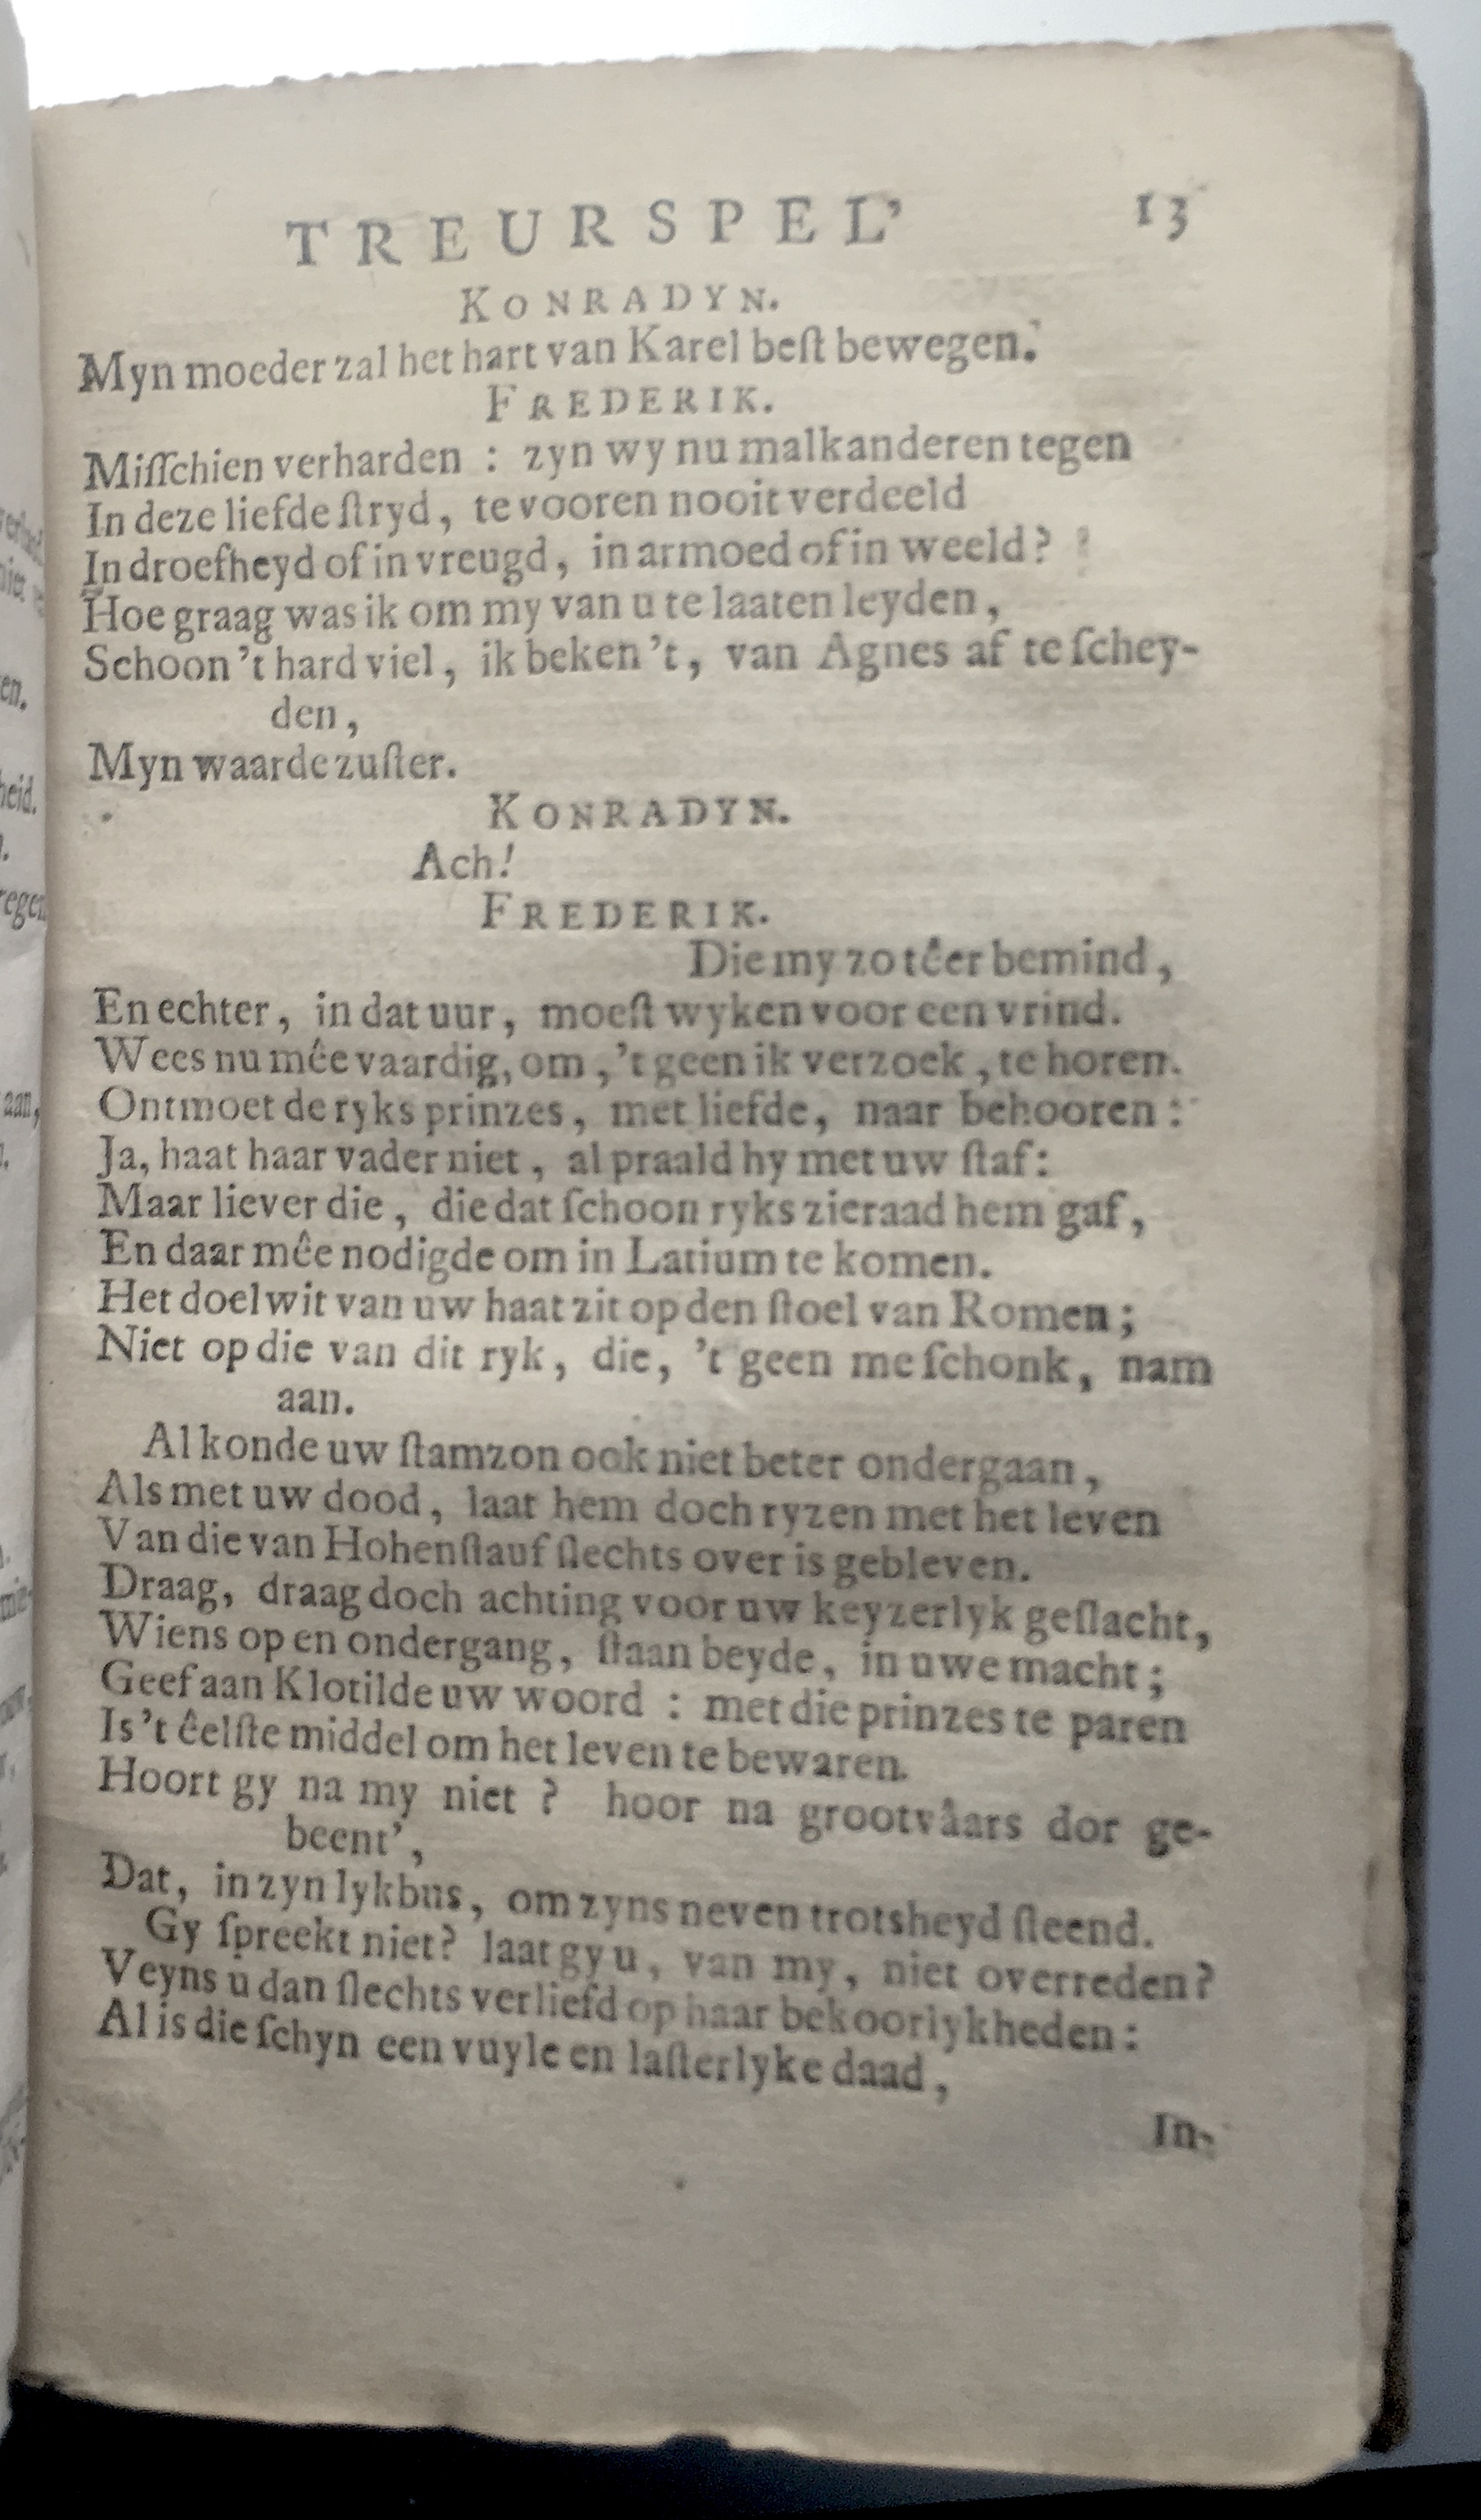 TREURSPEL' 13
KONRADYN.
Myn moeder zal het hart van Karel beſt bewegen.
FREDERIK.
Miſſchien verharden : zyn wy nu malkanderen tegen
In deze liefde ſtryd, te vooren nooit verdeeld
In droefheyd of in vreugd, in armoed of in weeld?
Hoe graag was ik om my van u te laaten leyden,
Schoon 't hard viel, ik beken 't, van Agnes af te ſchey-
den,
Myn waarde zuſter.
KONRADYN.
Ach!
FREDERIK.
Die my zo têer bemind,
En echter, in dat uur, moeſt wyken voor een vrind.
Wees nu mêe vaardig, om, 't geen ik verzoek, te horen.
Ontmoet de ryks prinzes, met liefde, naar behooren:
Ja, haat haar vader niet, al praald hy met uw ſtaf:
Maar liever die, die dat ſchoon ryks zieraad hem gaf,
En daar mêe nodigde om in Latium te komen.
Het doelwit van uw haat zit op den ſtoel van Romen;
Niet op die van dit ryk, die, 't geen me ſchonk, nam
aan.
Al konde uw ſtamzon ook niet beter ondergaan,
Als met uw dood, laat hem doch ryzen met het leven
Van die van Hohenſtauf ſlechts over is gebleven.
Draag, draag doch achting voor uw keyzerlyk geſlacht,
Wiens op en ondergang, ſtaan beyde, in uwe macht;
Geef aan Klotilde uw woord : met die prinzes te paren
Is 't êelſte middel om het leven te bewaren.
Hoort gy na my niet ? hoor na grootvâars dor ge-
beent',
Dat, in zyn lykbus, om zyns neven trotsheyd ſteend.
Gy ſpreekt niet? laat gy u, van my, niet overreden?
Veyns u dan ſlechts verliefd op haar bekoorlykheden:
Al is die ſchyn een vuyle en laſterlyke daad,
In-